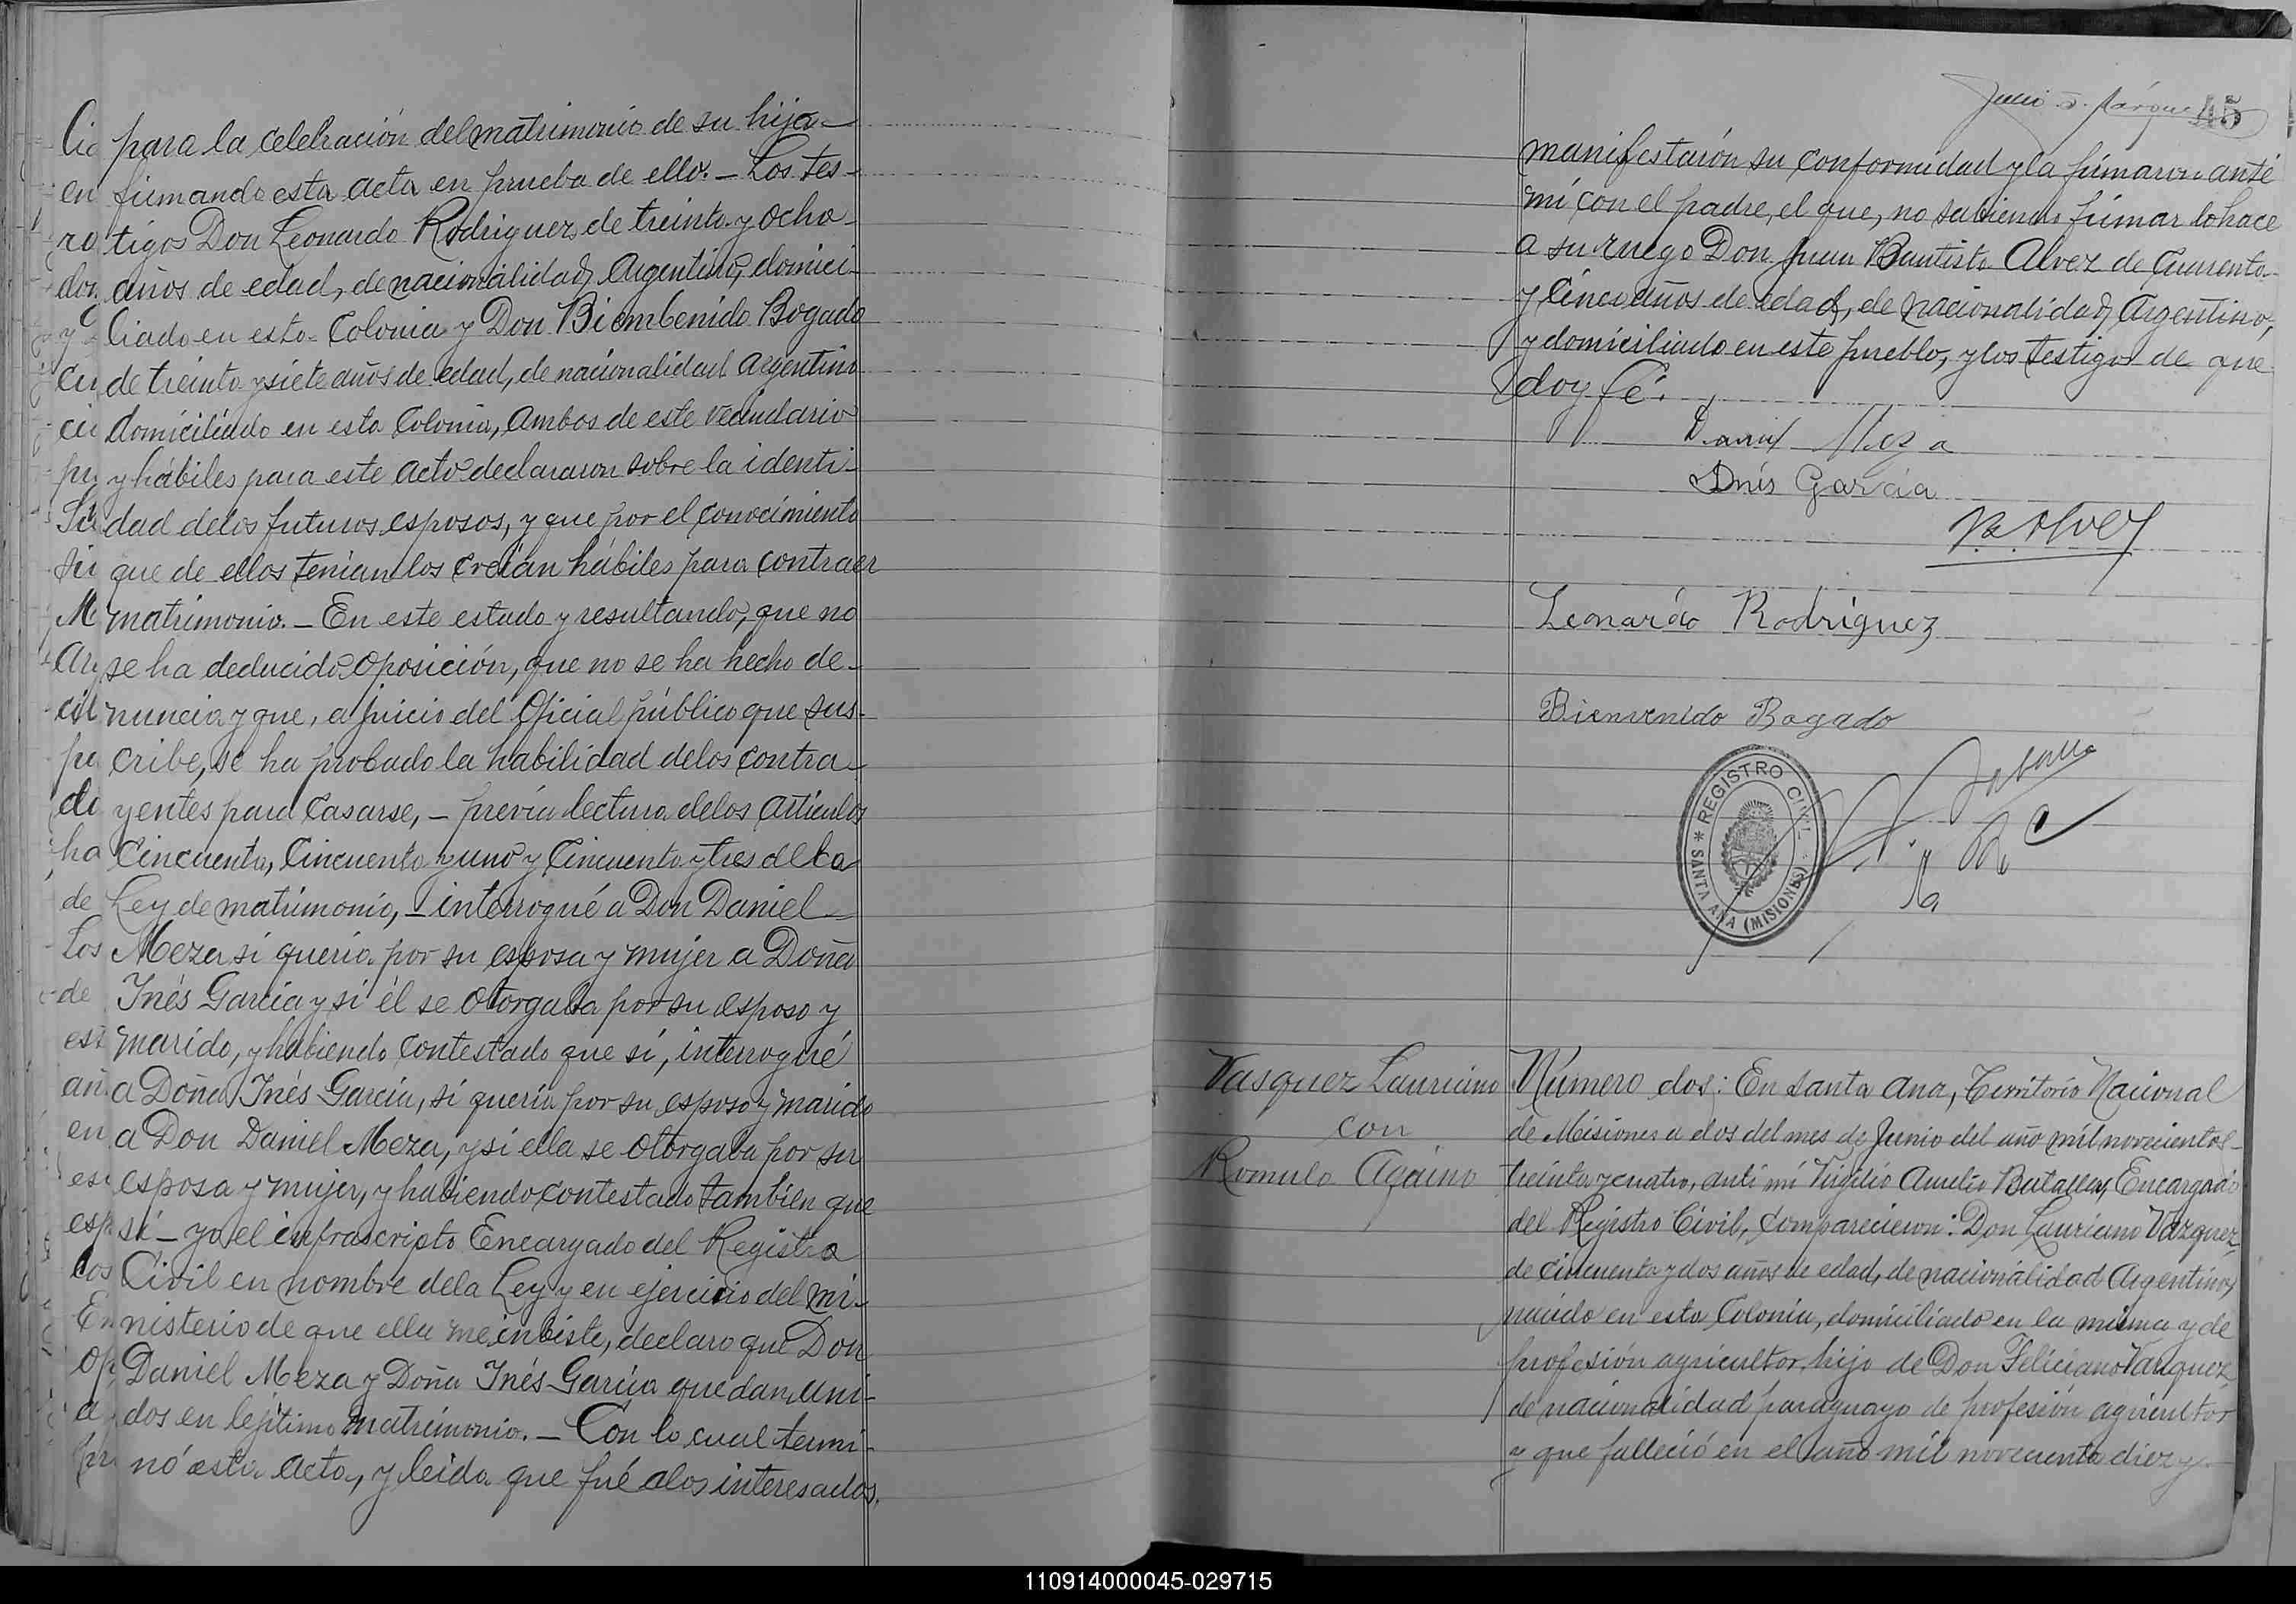 para la celebración del matrimonio de su hija
firmando esta acta en prueba de ello. — Los tes-
tigos Don Leonardo Rodriguez de treinta y ocho
años de edad, de nacionalidad Argentino, domici-
liado en esta Colonia y Don Biembenido Bogado
de treinta y siete años de edad, de nacionalidad argentino
domiciliado en esta Colonia, ambos de este vecindario
y hábiles para este acto declararon sobre la identi-
dad de los futuros esposos, y que por el conocimiento
que de ellos tenian los creían hábiles para contraer
matrimonio. — En este estado y resultando, que no
se ha deducido oposición, que no se ha hecho de-
nuncia y que, a juicio del Oficial público que sus-
cribe, se ha probado la habilidad de los contra-
yentes para casarse, — previa lectura de los articulos
Cincuenta, Cincuenta y uno y Cincuenta y tres de la
Ley de matrimonio, — interrogué a Don Daniel
Meza si queria por su esposa y mujer a Doña
Inés Garcia y si él se otorgaba por su esposo y
marido, y habiendo contestado que sí, interrogué
a Doña Inés Garcia, si queria por su esposo y marido
a Don Daniel Meza, y si ella se otorgaba por su
esposa y mujer, y habiendo contestado tambien que
sí — yo el infrascripto Encargado del Registro
Civil en nombre de la Ley y en ejercicio del mi-
nisterio de que ella me inbiste, declaro que Don
Daniel Meza y Doña Inés Garcia quedan uni-
dos en lejitimo matrimonio. — Con lo cual termi-
nó esta acta, y leida que fué a los interesados,
45
manifestarón su conformidad y la firmaron ante
mí con el padre, el que, no sabiendo firmar lo hace
a su ruego Don Juan Bautista Alvez de Cuarenta
y Cinco años de edad, de nacionalidad Argentino,
y domiciliado en este pueblo, y los testigos de que
doy fé.
Daniel Meza
Inés Garcia
B. Alvez
Leonardo Rodriguez
Bienvenido Bogado
* REGISTRO CIVIL *
SANTA ANA (MISIONES)
Vasquez Lauriano
con
Romula Aquino
Número dos: En Santa Ana, Territorio Nacional
de Misiones a dos del mes de Junio del año mil novecientos
treinta y cuatro, ante mí Virgilio Aurelio Batalla, Encargado
del Registro Civil, comparecieron: Don Lauriano Vazquez
de cincuenta y dos años de edad, de nacionalidad Argentino,
nacido en esta Colonia, domiciliado en la misma y de
profesión agricultor, hijo de Don Feliciano Vazquez,
de nacionalidad paraguayo de profesión agricultor
y que falleció en el año mil novecientos diez y
110914000045-029715